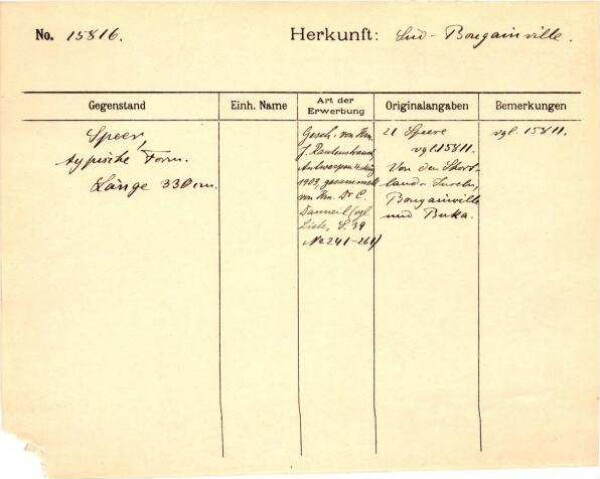 No. 15816.
Herkunft: Süd-Bougainville.
Gegenstand
Einh. Name
Art der
Erwerbung
Originalangaben
Bemerkungen
Speer,
typische Form.
Länge 330 cm.
Gesch. von Hrn.
J.
Antwerpen
1903, gesammelt
von Hrn. Dr C.
Danneil (vgl
Liste, S. 39
No 241-264)
21 Speere
vgl. 15811.
Von den Short-
land-Inseln,
Bougainville
und Buka.
vgl. 15811.